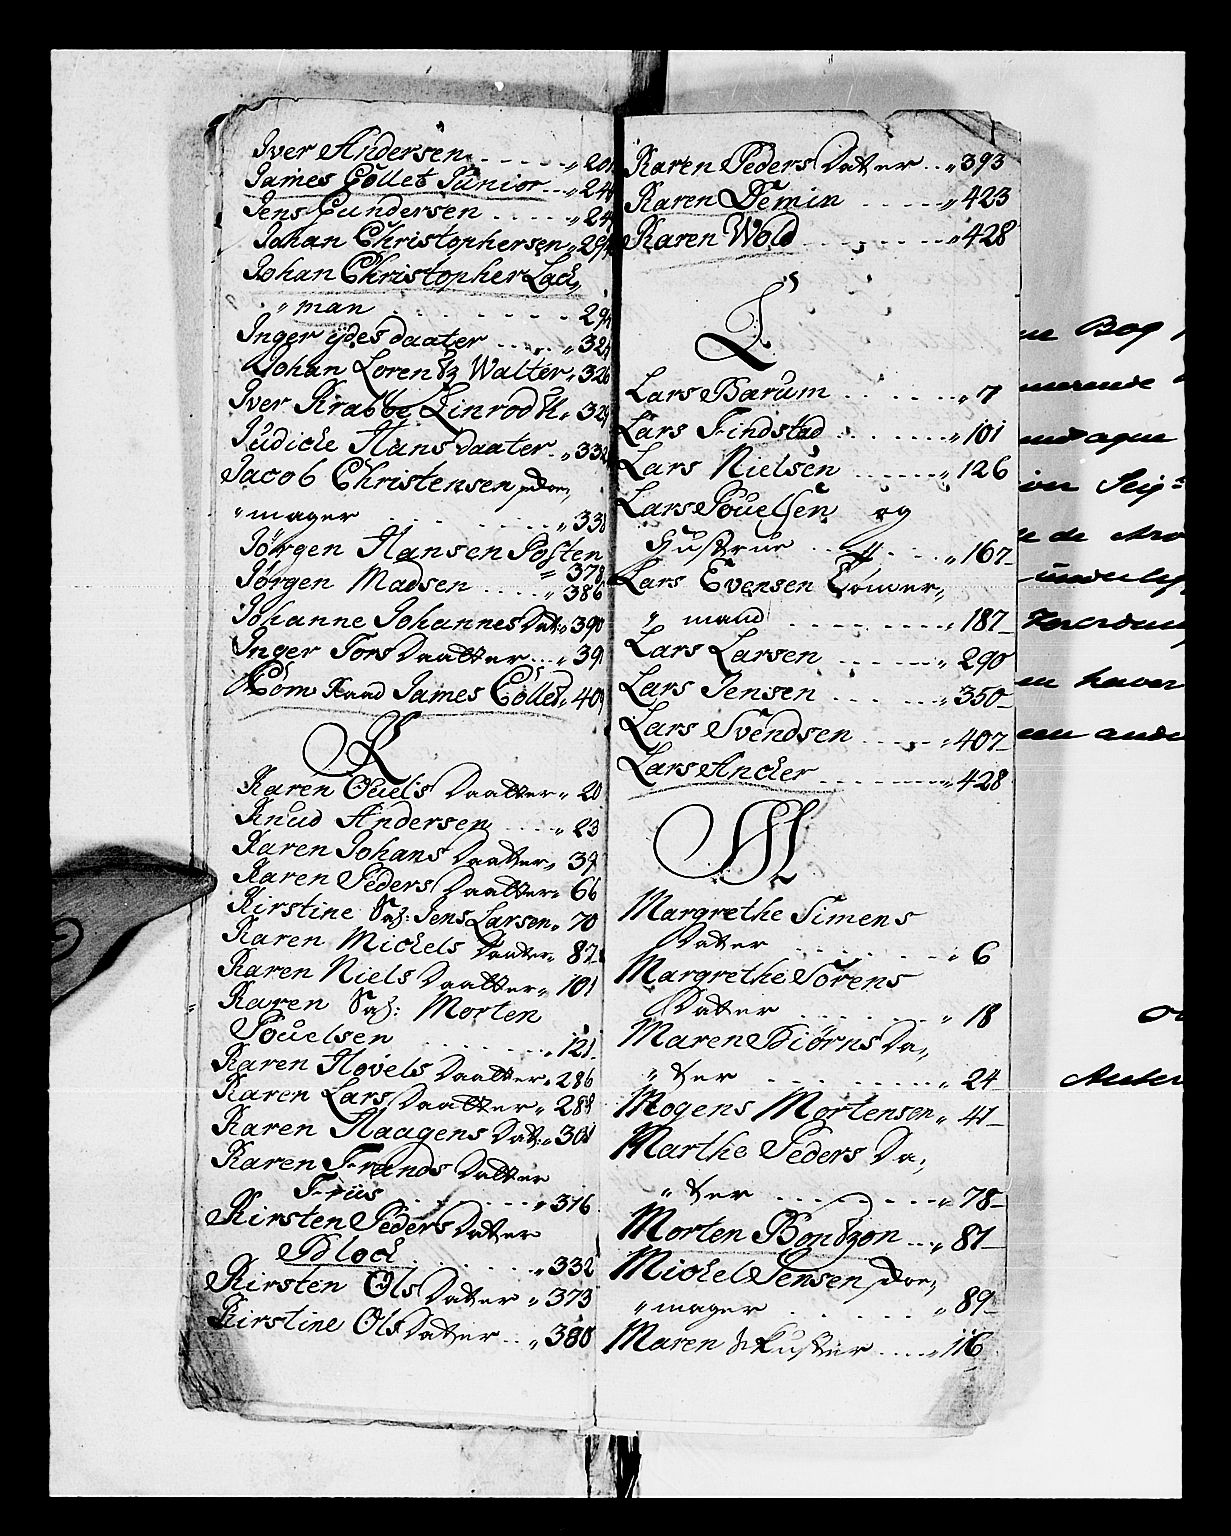 Iver Andersen - - - - „ 20
James Collet Junior - - „ 24
Jens Gundersen - - - - - „ 24
Johan Christophersen „ 294
Johan Christopher Lack„
„ man - - - - - - - - 294
Inger ijdes daater - - - - „ 324
Johan Lorentz Walter „ 326
Iver Krabbe Linrod
Judiche Hans daater - - „ 332
Jacob Christensen
„ mager - - - - - - „ 338
Jørgen Hansen Posten
„ 378
Jørgen Madsen - - - - „ 386
Johanne Johannes Dat: „ 390
Inger Tors Daatter - - - „ 39
James Collet „ 409
K
Karen Oluels Daatter „ 20
Knud Andersen - - - - „ 23
Karen Johans Daatter „ 39
Karen Peders Daatter „ 66
Kirstine Sal: Jens Larsen „ 70
Karen Mickels Daater „ 82
Karen Niels Daatter „ 101
Karen Sal: Morten
Pouelsen - - - - - - - „ 121
Karen Hovels Daatter „ 286
Karen Lars Daatter „ 288
Karen Haagens Dat: „ 301
Karen Frands Datter
Friis - - - - - - - „ 316
Kirsten Peders Datter
Block - - - - - - „ 332
Kirsten Ols Datter „ 373
Kirstine Ols Datter - - „ 380
Karen Peders Datter - - „ 393
Karen Demin - - - - - „ 423
Karen Wold - - - - - - „ 428
L
Lars Barum - - - - - - „ 7
Lars Findstad - - - - - „ 101
Lars Nielsen - - - - - „ 126
Lars Pouelsen og
Hustrue - - - - - - „ 167
Lars Evensen Tømer„
„ mand - - - - - - - - „ 187
Lars Larsen - - - - - „ 290
Lars Jensen - - - - - „ 350
Lars Svendsen - - - - - „ 407
Lars Ancher - - - - - - „ 428
M
Margrethe Simens
Datter - - - - - - - „ 6
Margrethe Sørens
Datter - - - - - - - „ 18
Maren Biørns Da„
„ tter - - - - - - - - „ 24
Mogens Mortensen „ 41
Marthe Peders Da„
„ tter - - - - - - - - „ 78
Morten Bondzon - - - „ 81
Mickel Jensen
„ mager - - - - - - „ 89
Maren - - - - „ 116
ne Bog
merende
haver